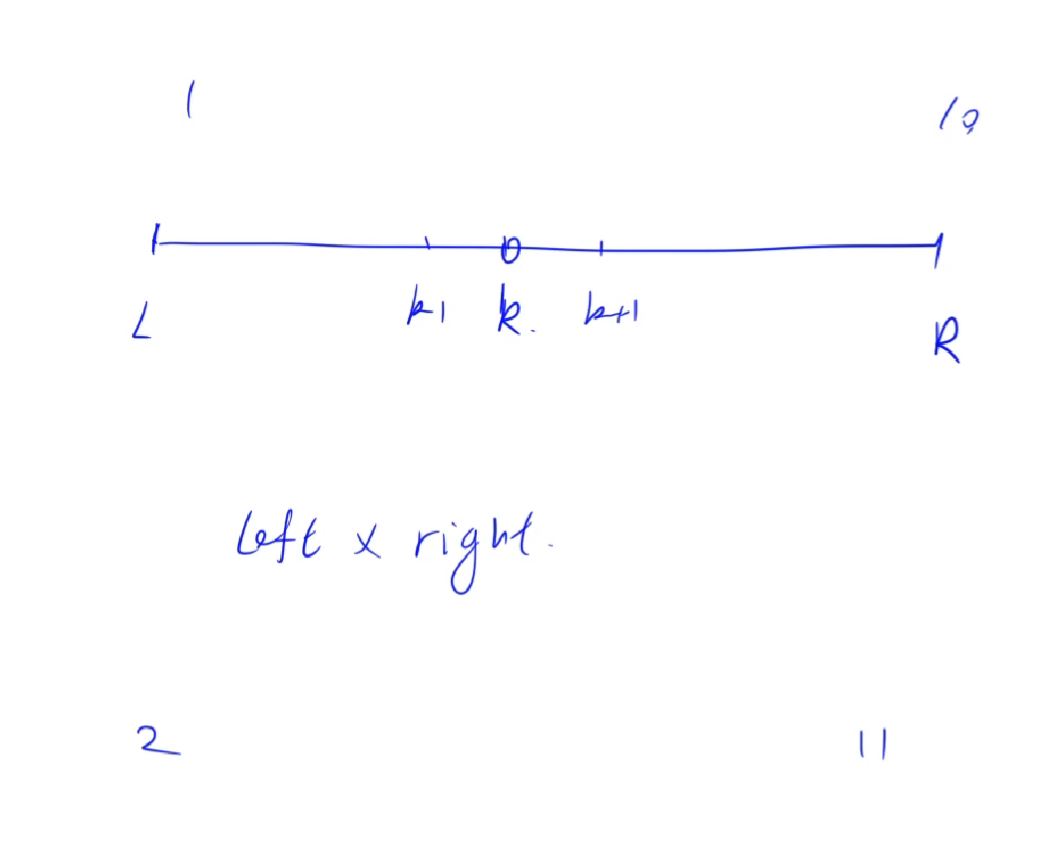 1 10
L k-1 k. k+1 R
left x right.
2 11